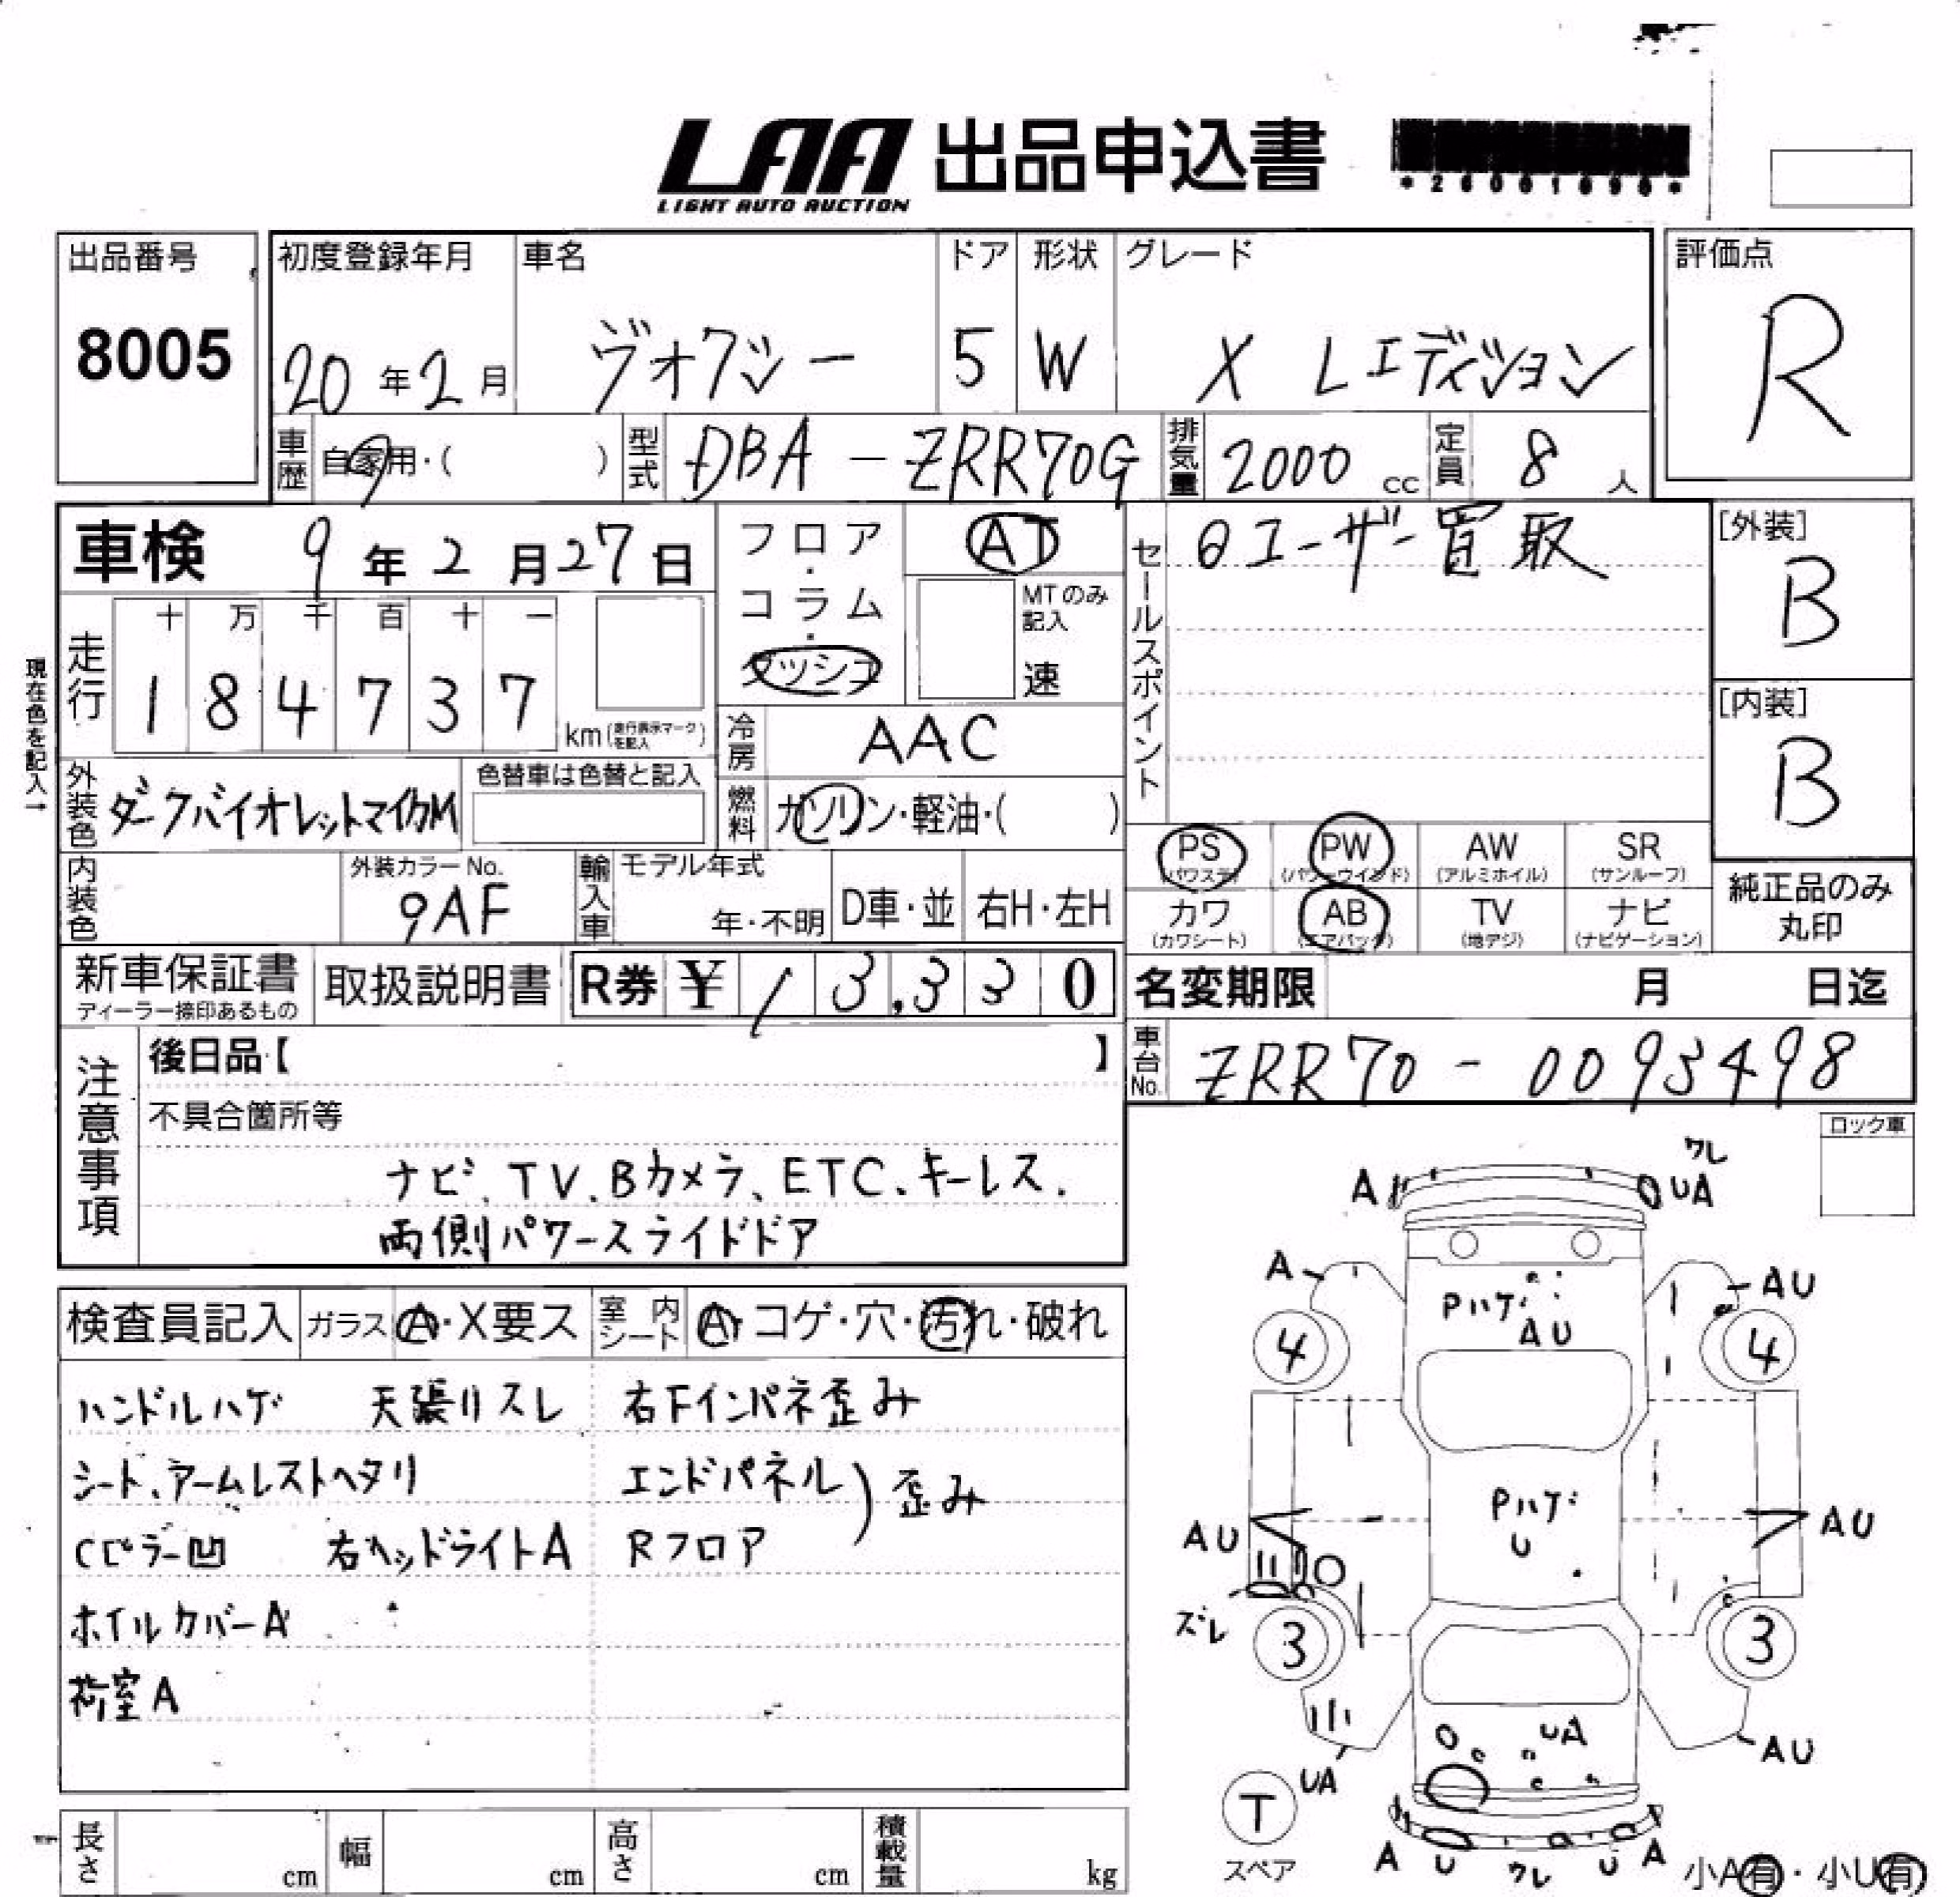 LAA 出品申込書
LIGHT AUTO AUCTION
出品番号 8005
初度登録年月 20年2月
車名 ヴォクシー
ドア 5
形状 W
グレード X Lエディション
評価点 R
車歴 自家用・( )
型式 DBA-ZRR70G
排気量 2000cc
定員 8人
車検 9年2月27日
フロア・コラム・ダッシュ
AT
MTのみ記入 速
セールスポイント
ユーザー買取
[外装] B
[内装] B
現在色を記入→
走行 十 万 千 百 十 一
1 8 4 7 3 7 km(走行表示マークを記入)
冷房 AAC
外装色 ダークバイオレットマイカM
色替車は色替と記入
燃料 ガソリン・軽油・( )
PS (パワステ) PW (パワーウインド) AW (アルミホイル) SR (サンルーフ)
カワ (カワシート) AB (エアバック) TV (地デジ) ナビ (ナビゲーション)
純正品のみ丸印
内装色
外装カラーNo. 9AF
輸入車 モデル年式 年・不明 D車・並 右H・左H
新車保証書 ディーラー捺印あるもの
取扱説明書
R券 ¥13,330
名変期限 月 日迄
車台No. ZRR70-0093498
注意事項
後日品【 】
不具合箇所等
ナビ、TV、Bカメラ、ETC、キーレス.
両側パワースライドドア
ロック車
検査員記入 ガラス A・X要ス 室内シート A・コゲ・穴・汚れ・破れ
ハンドルハゲ 天張リスレ 右Fインパネ歪み
シート、アームレストヘタリ エンドパネル
Cピラー凹 右ヘッドライトA Rフロア ) 歪み
ホイルカバーA
荷室A
ワレ
A UA
A AU
Pハゲ
AU
4 4
Pハゲ
U
AU AU
ズレ
3 3
UA
UA AU
T スペア
A U ワレ U A
小A有・小U有
長さ cm 幅 cm 高さ cm 積載量 kg